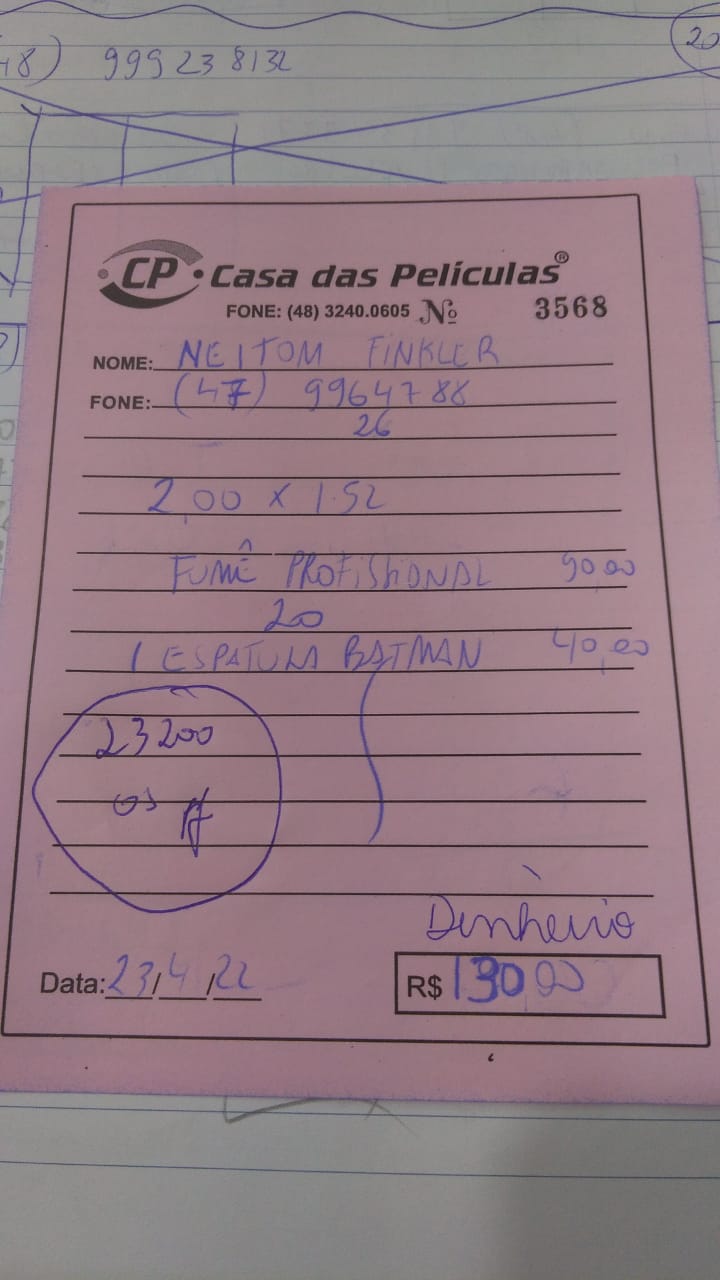 48) 999238132
20
CP Casa das Películas®
FONE: (48) 3240.0605 Nº 3568
NOME: NEITOM FINKLER
FONE: (47) 9964788
26
2,00 x 1.52
FUMÊ PROFISSIONAL 90,00
20
1 ESPATULA BATMAN 40,00
23200
Dinheiro
Data: 23/4/22 R$ 130,00